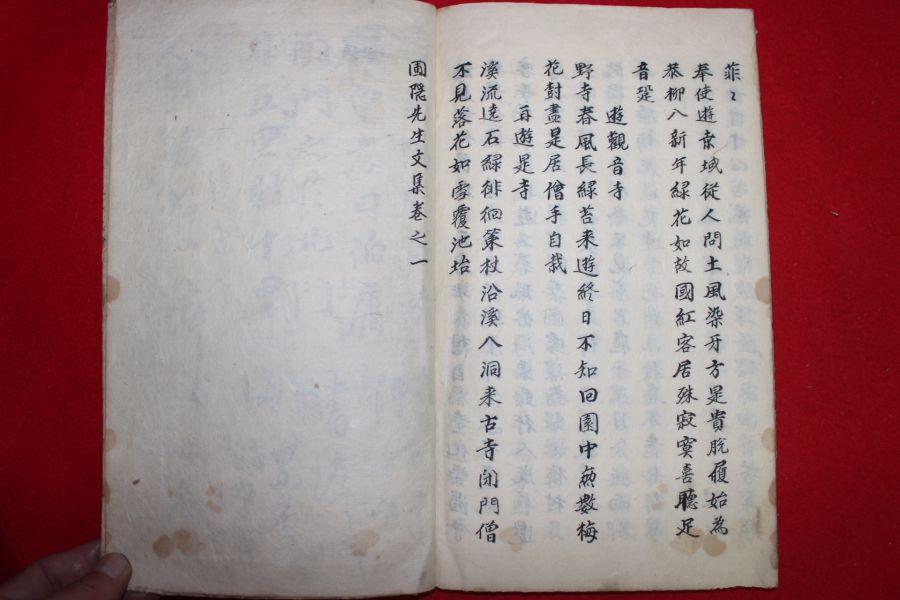 菲〻
奉使遊桒域從人問土風染牙方是貴脫履始為
恭柳入新年綠花如故國紅客居殊寂寞喜聽足
音跫
遊觀音寺
野寺春風長綠苔来遊終日不知回園中無數梅
花尌盡是居僧手自栽
再遊是寺
溪流遶石綠徘徊策杖沿溪入洞来古寺閉門僧
不見落花如雪覆池坮
圃隠先生文集卷之一